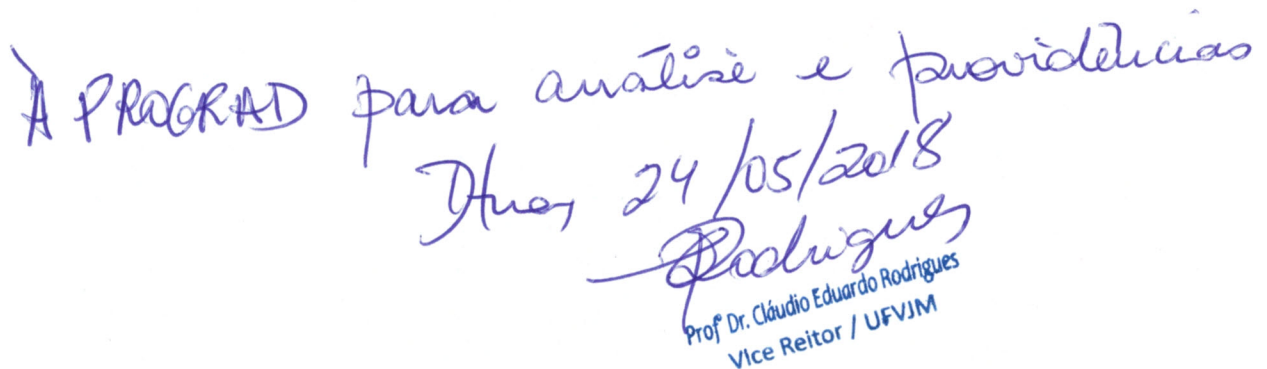 À PROGRAD para análise e providências
Dtna, 24/05/2018
Rodrigues
Prof Dr. Cláudio Eduardo Rodrigues
Vice Reitor / UFVJM